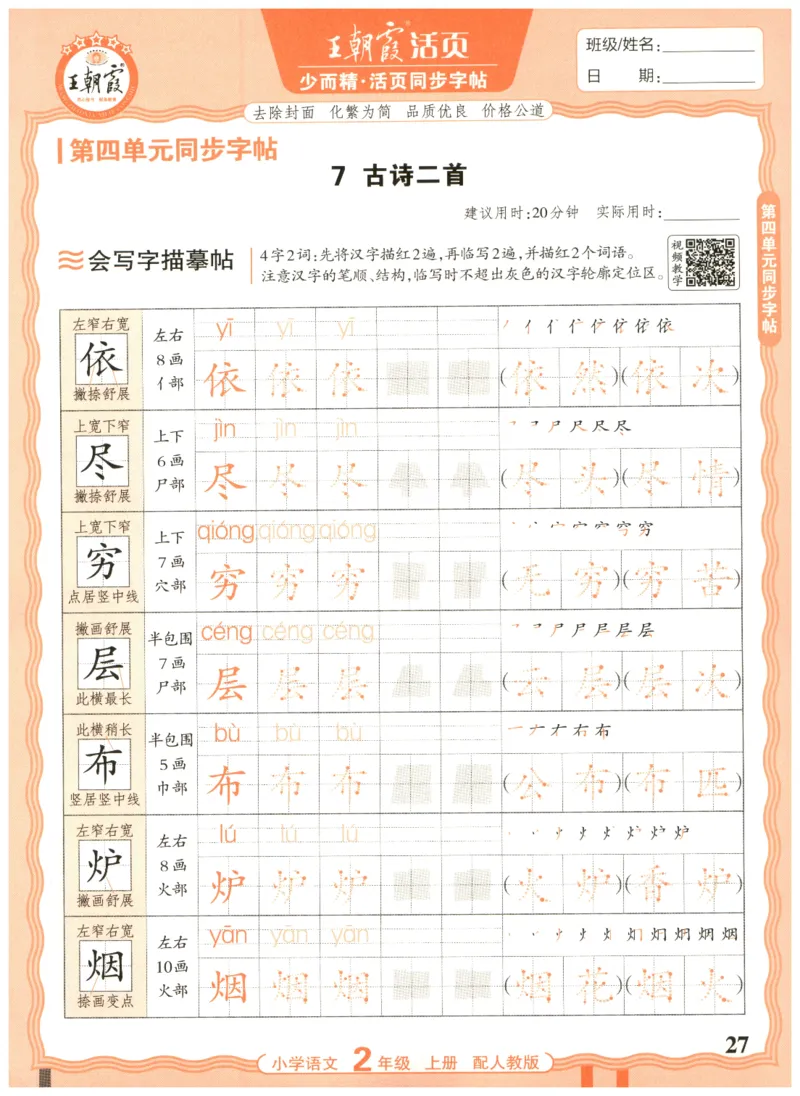 王朝霞
王朝霞活页
少而精·活页同步字帖
班级/姓名:
日 期:
去除封面 化繁为简 品质优良 价格公道
第四单元同步字帖
7 古诗二首
建议用时:20分钟 实际用时:
会写字描摹帖
4字2词:先将汉字描红2遍,再临写2遍,并描红2个词语。
注意汉字的笔顺、结构,临写时不超出灰色的汉字轮廓定位区。
视频教学
第四单元同步字帖
左窄右宽
依
撇捺舒展
左右
8画
亻部
yī yī yī
依 依 依 (依 然)(依 次)
上宽下窄
尽
撇捺舒展
上下
6画
尸部
jìn jìn jìn
尽 尽 尽 (尽 头)(尽 情)
上宽下窄
穷
点居竖中线
上下
7画
穴部
qióng qióng qióng
穷 穷 穷 (无 穷)(穷 苦)
撇画舒展
层
此横最长
半包围
7画
尸部
céng céng céng
层 层 层 (云 层)(层 次)
此横稍长
布
竖居竖中线
半包围
5画
巾部
bù bù bù
布 布 布 (公 布)(布 匹)
左窄右宽
炉
撇画舒展
左右
8画
火部
lú lú lú
炉 炉 炉 (火 炉)(香 炉)
左窄右宽
烟
捺画变点
左右
10画
火部
yān yān yān
烟 烟 烟 (烟 花)(烟 火)
27
小学语文 2年级 上册 配人教版